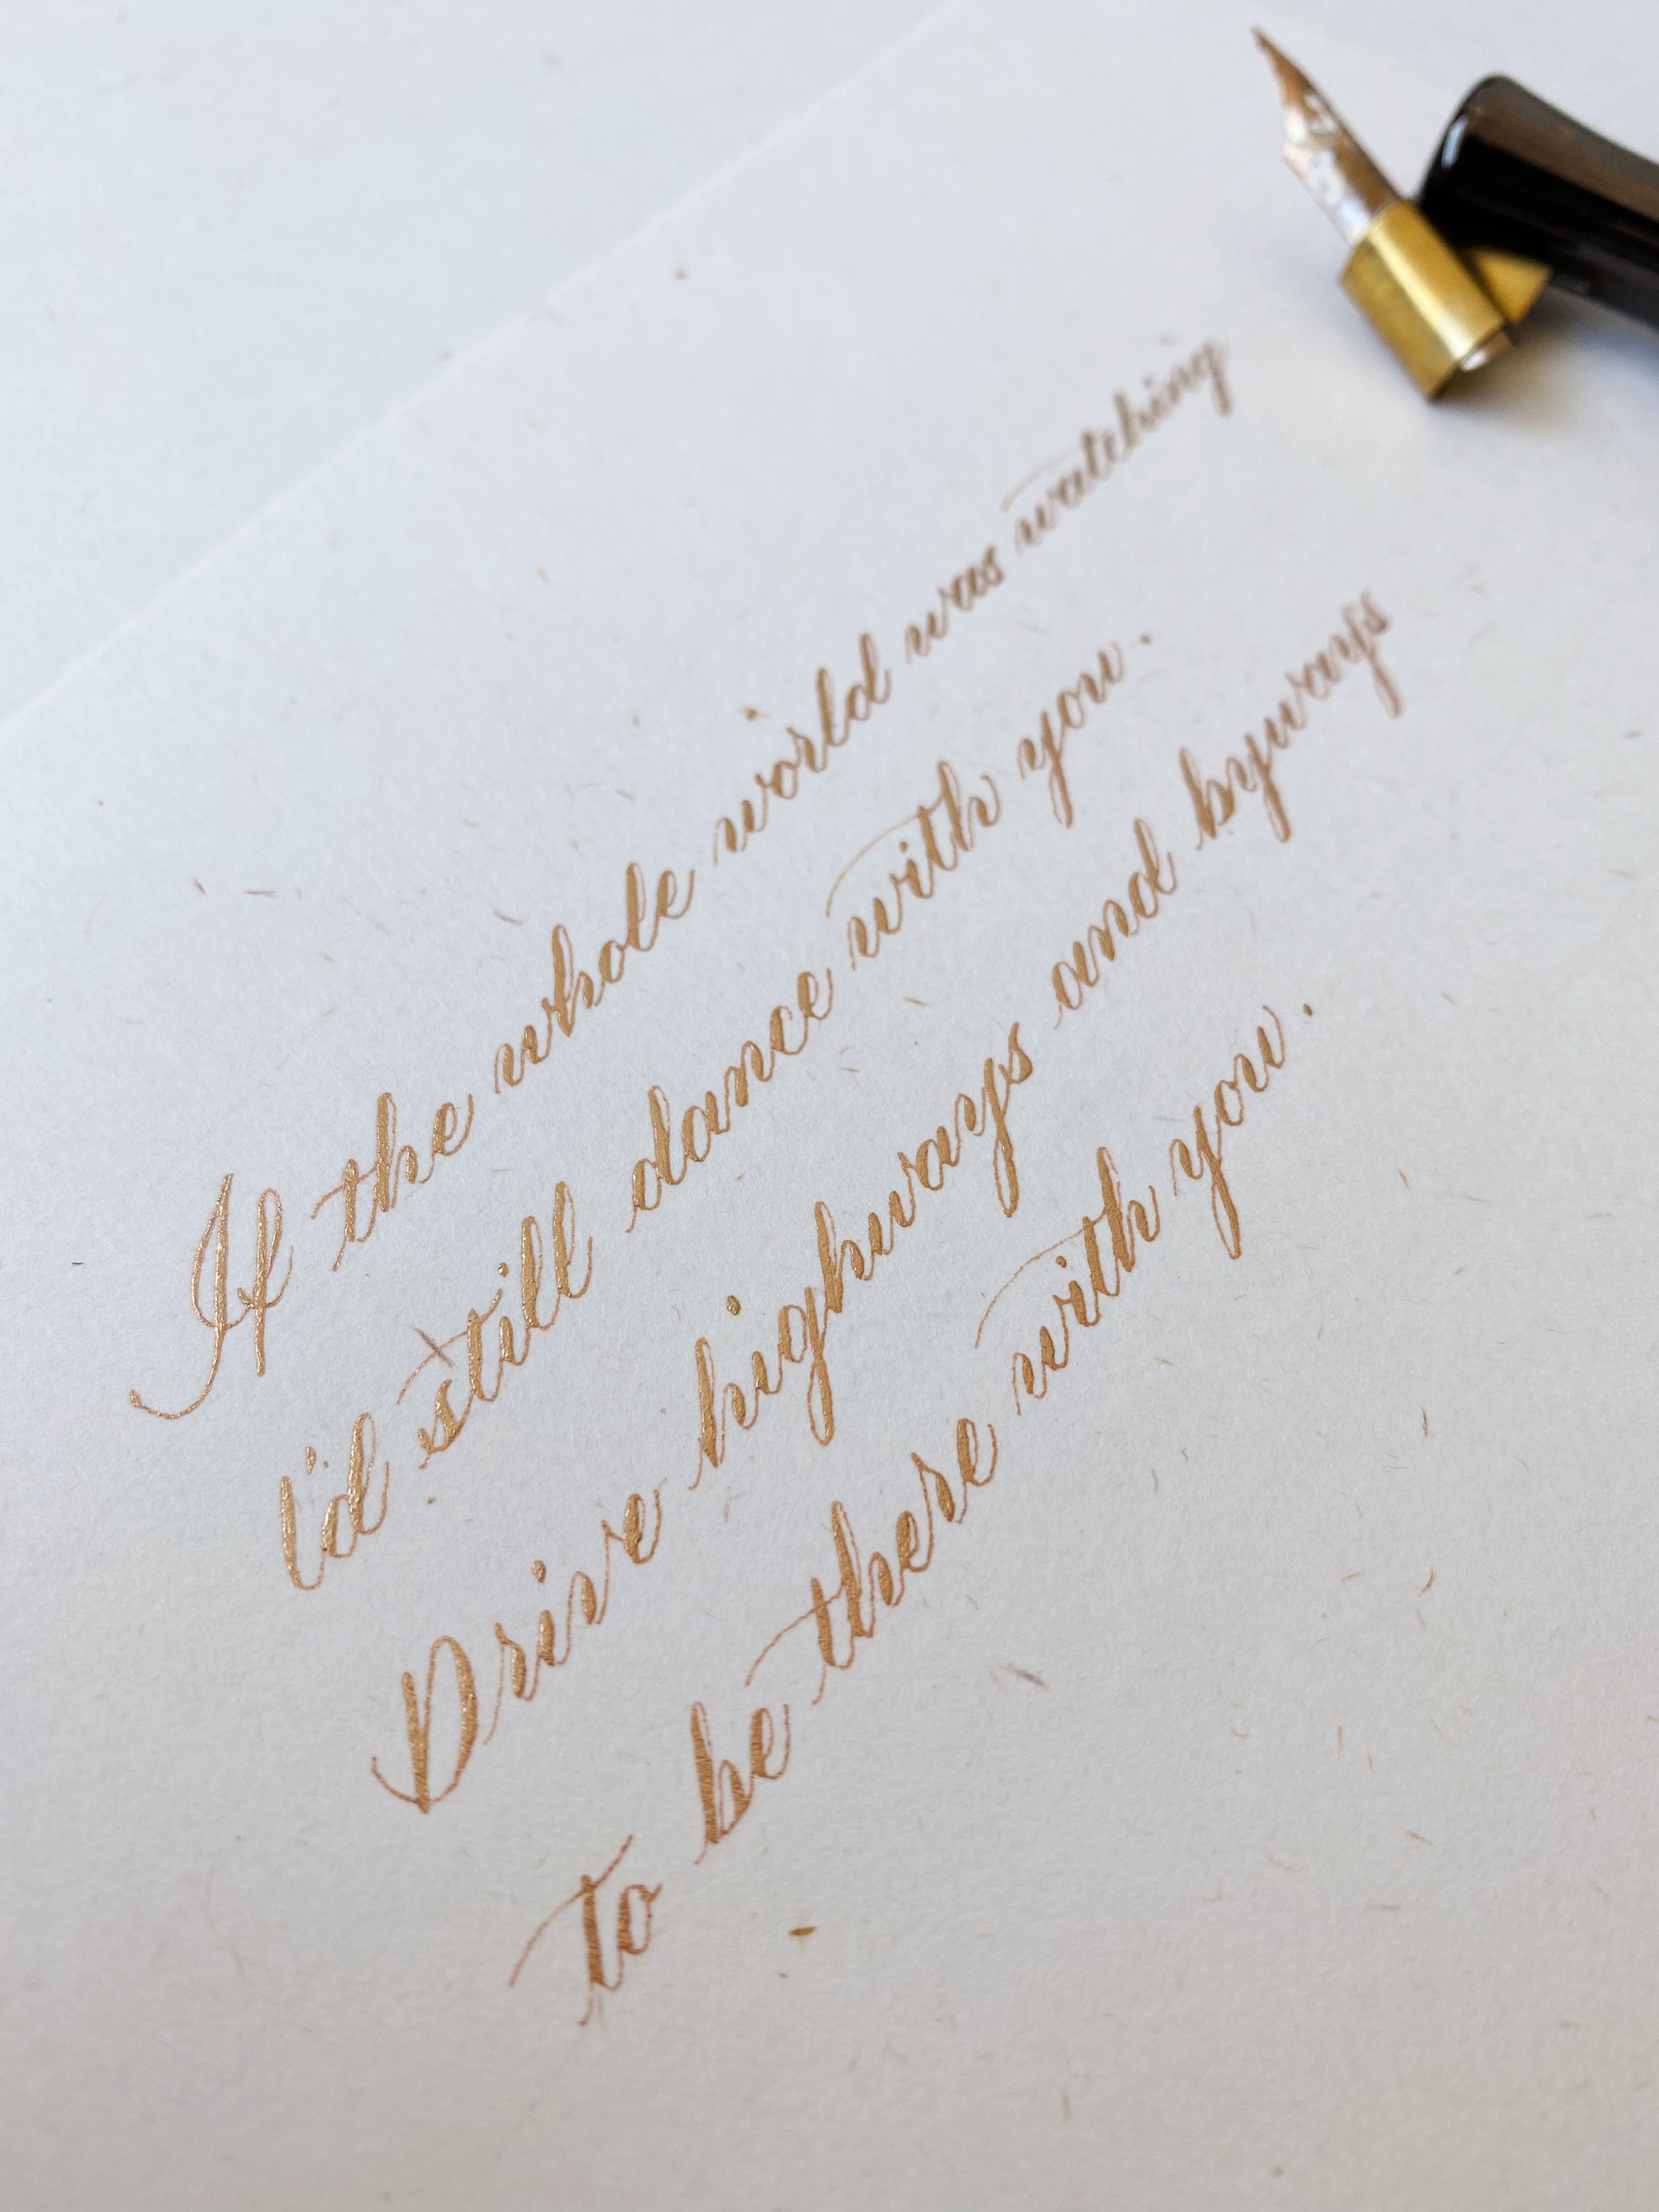 If the whole world was watching
I'd still dance with you.
Drive highways and byways
to be there with you.